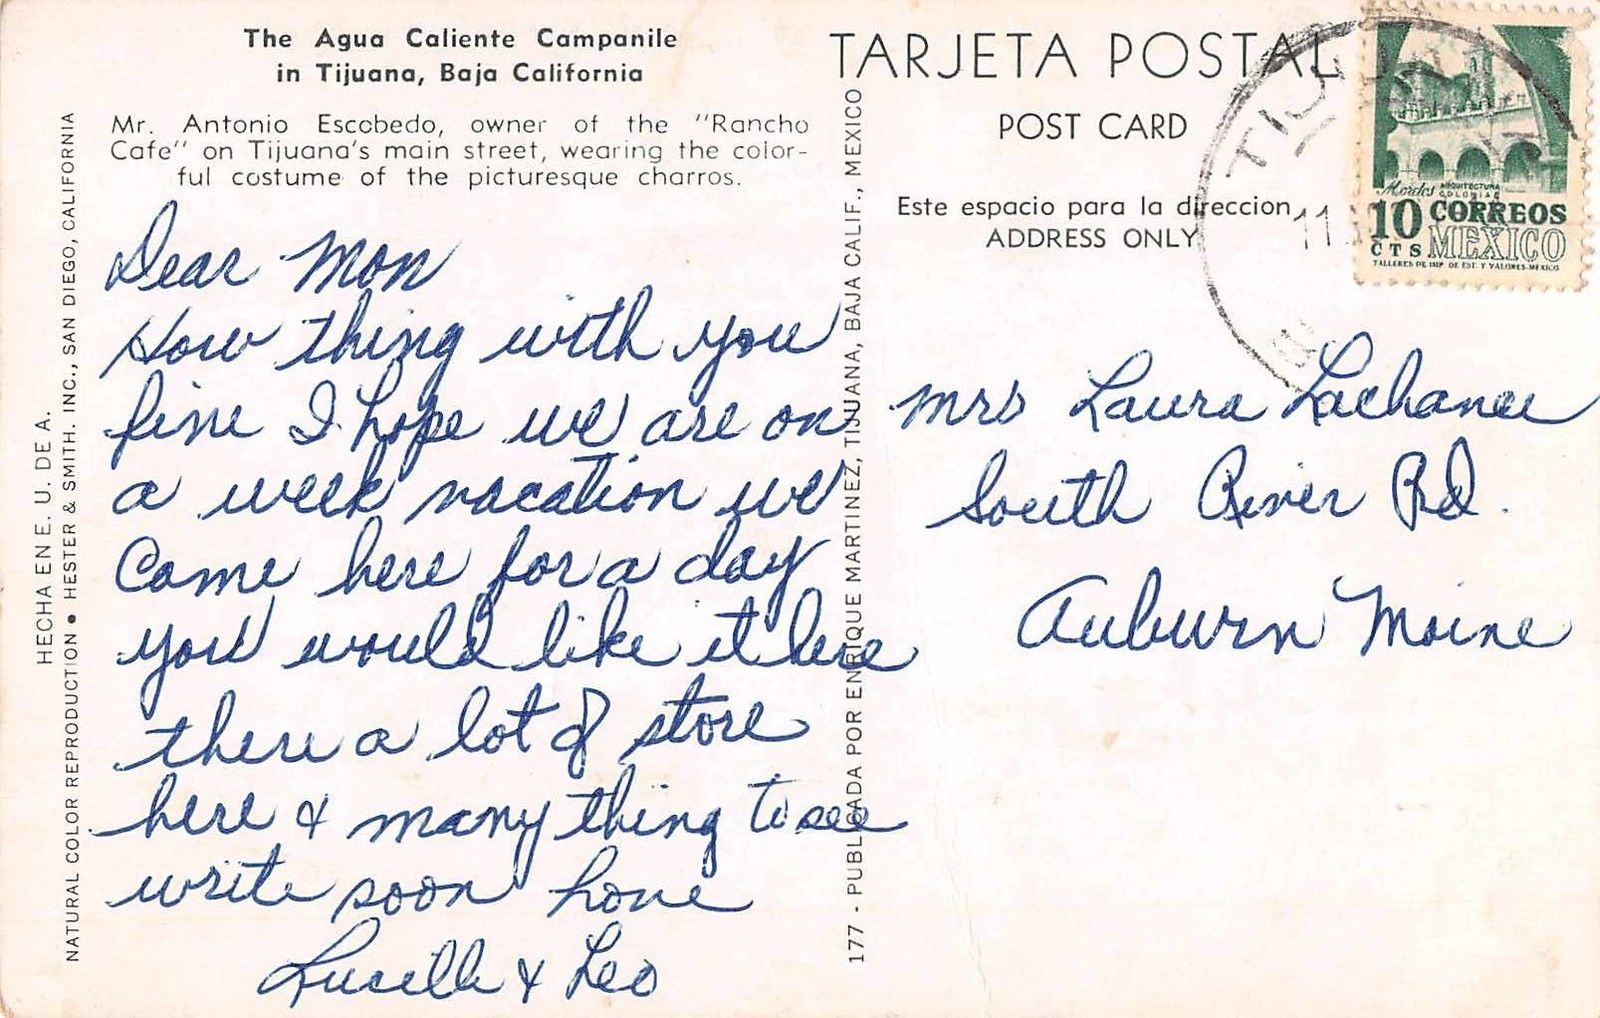 The Agua Caliente Campanile
in Tijuana, Baja California
Mr. Antonio Escobedo, owner of the "Rancho
Cafe" on Tijuana's main street, wearing the color-
ful costume of the picturesque charros.
HECHA EN E. U. DE A.
NATURAL COLOR REPRODUCTION • HESTER & SMITH. INC., SAN DIEGO, CALIFORNIA
Dear Mon
How thing with you
fine I hope we are on
a week vacation we
Came here for a day
you would like it here
there a lot of store
here & many thing to see
write soon love
Lucille & Leo
177 - PUBLICADA POR ENRIQUE MARTINEZ, TIJUANA, BAJA CALIF., MEXICO
TARJETA POSTAL
POST CARD
Este espacio para la direccion
ADDRESS ONLY
TIJUANA
11
Morelos ARQUITECTURA
COLONIAL
10 CORREOS
CTS MEXICO
TALLERES DE IMP. DE EST. Y VALORES-MEXICO
Mrs Laura Lachance
South River Rd.
Auburn Maine